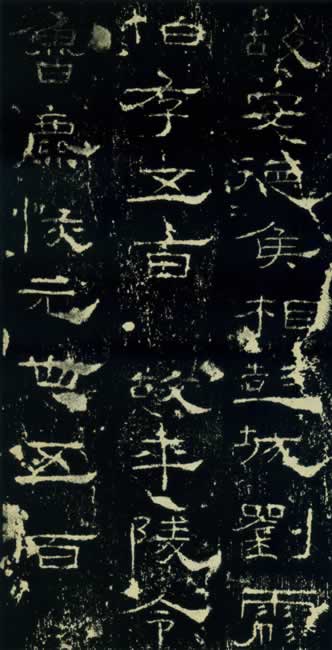 故安德侯相彭城劉彪
伯存五百 故平陵令
魯麃恢元世五百